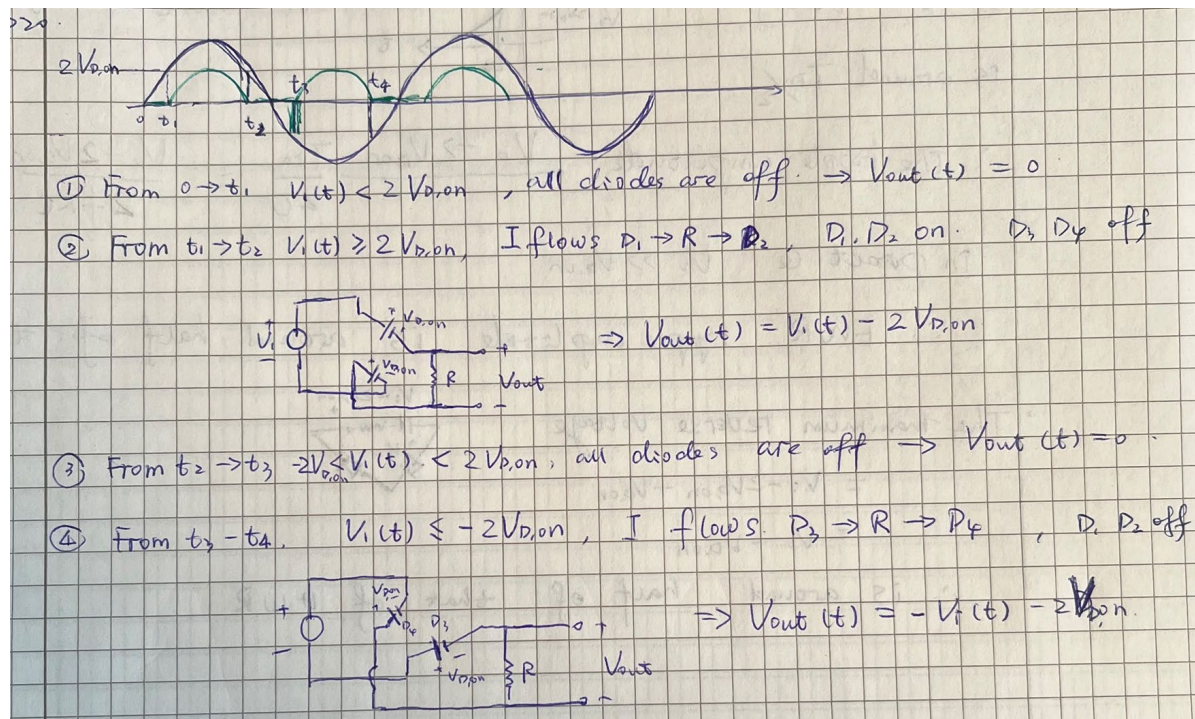 220.
2 V_D,on
t3 t4
0 t1 t2
① From 0 → t1 Vi(t) < 2 V_D,on , all diodes are off. → Vout (t) = 0
② From t1 → t2 Vi(t) ≥ 2 V_D,on, I flows D1 → R → D2, D1, D2 on. D3 D4 off
+ V_D,on
+
Vi
-
+ V_D,on
R
+
Vout
-
⇒ Vout (t) = Vi(t) - 2 V_D,on
③ From t2 → t3 -2V_D,on < Vi(t) < 2 V_D,on, all diodes are off → Vout (t) = 0.
④ From t3 - t4, Vi(t) ≤ -2 V_D,on, I flows. D3 → R → D4 , D1 D2 off
+
-
V_D,on
+
D4
D3
+ V_D,on -
R
+
Vout
-
⇒ Vout (t) = - Vi(t) - 2 V_D,on.